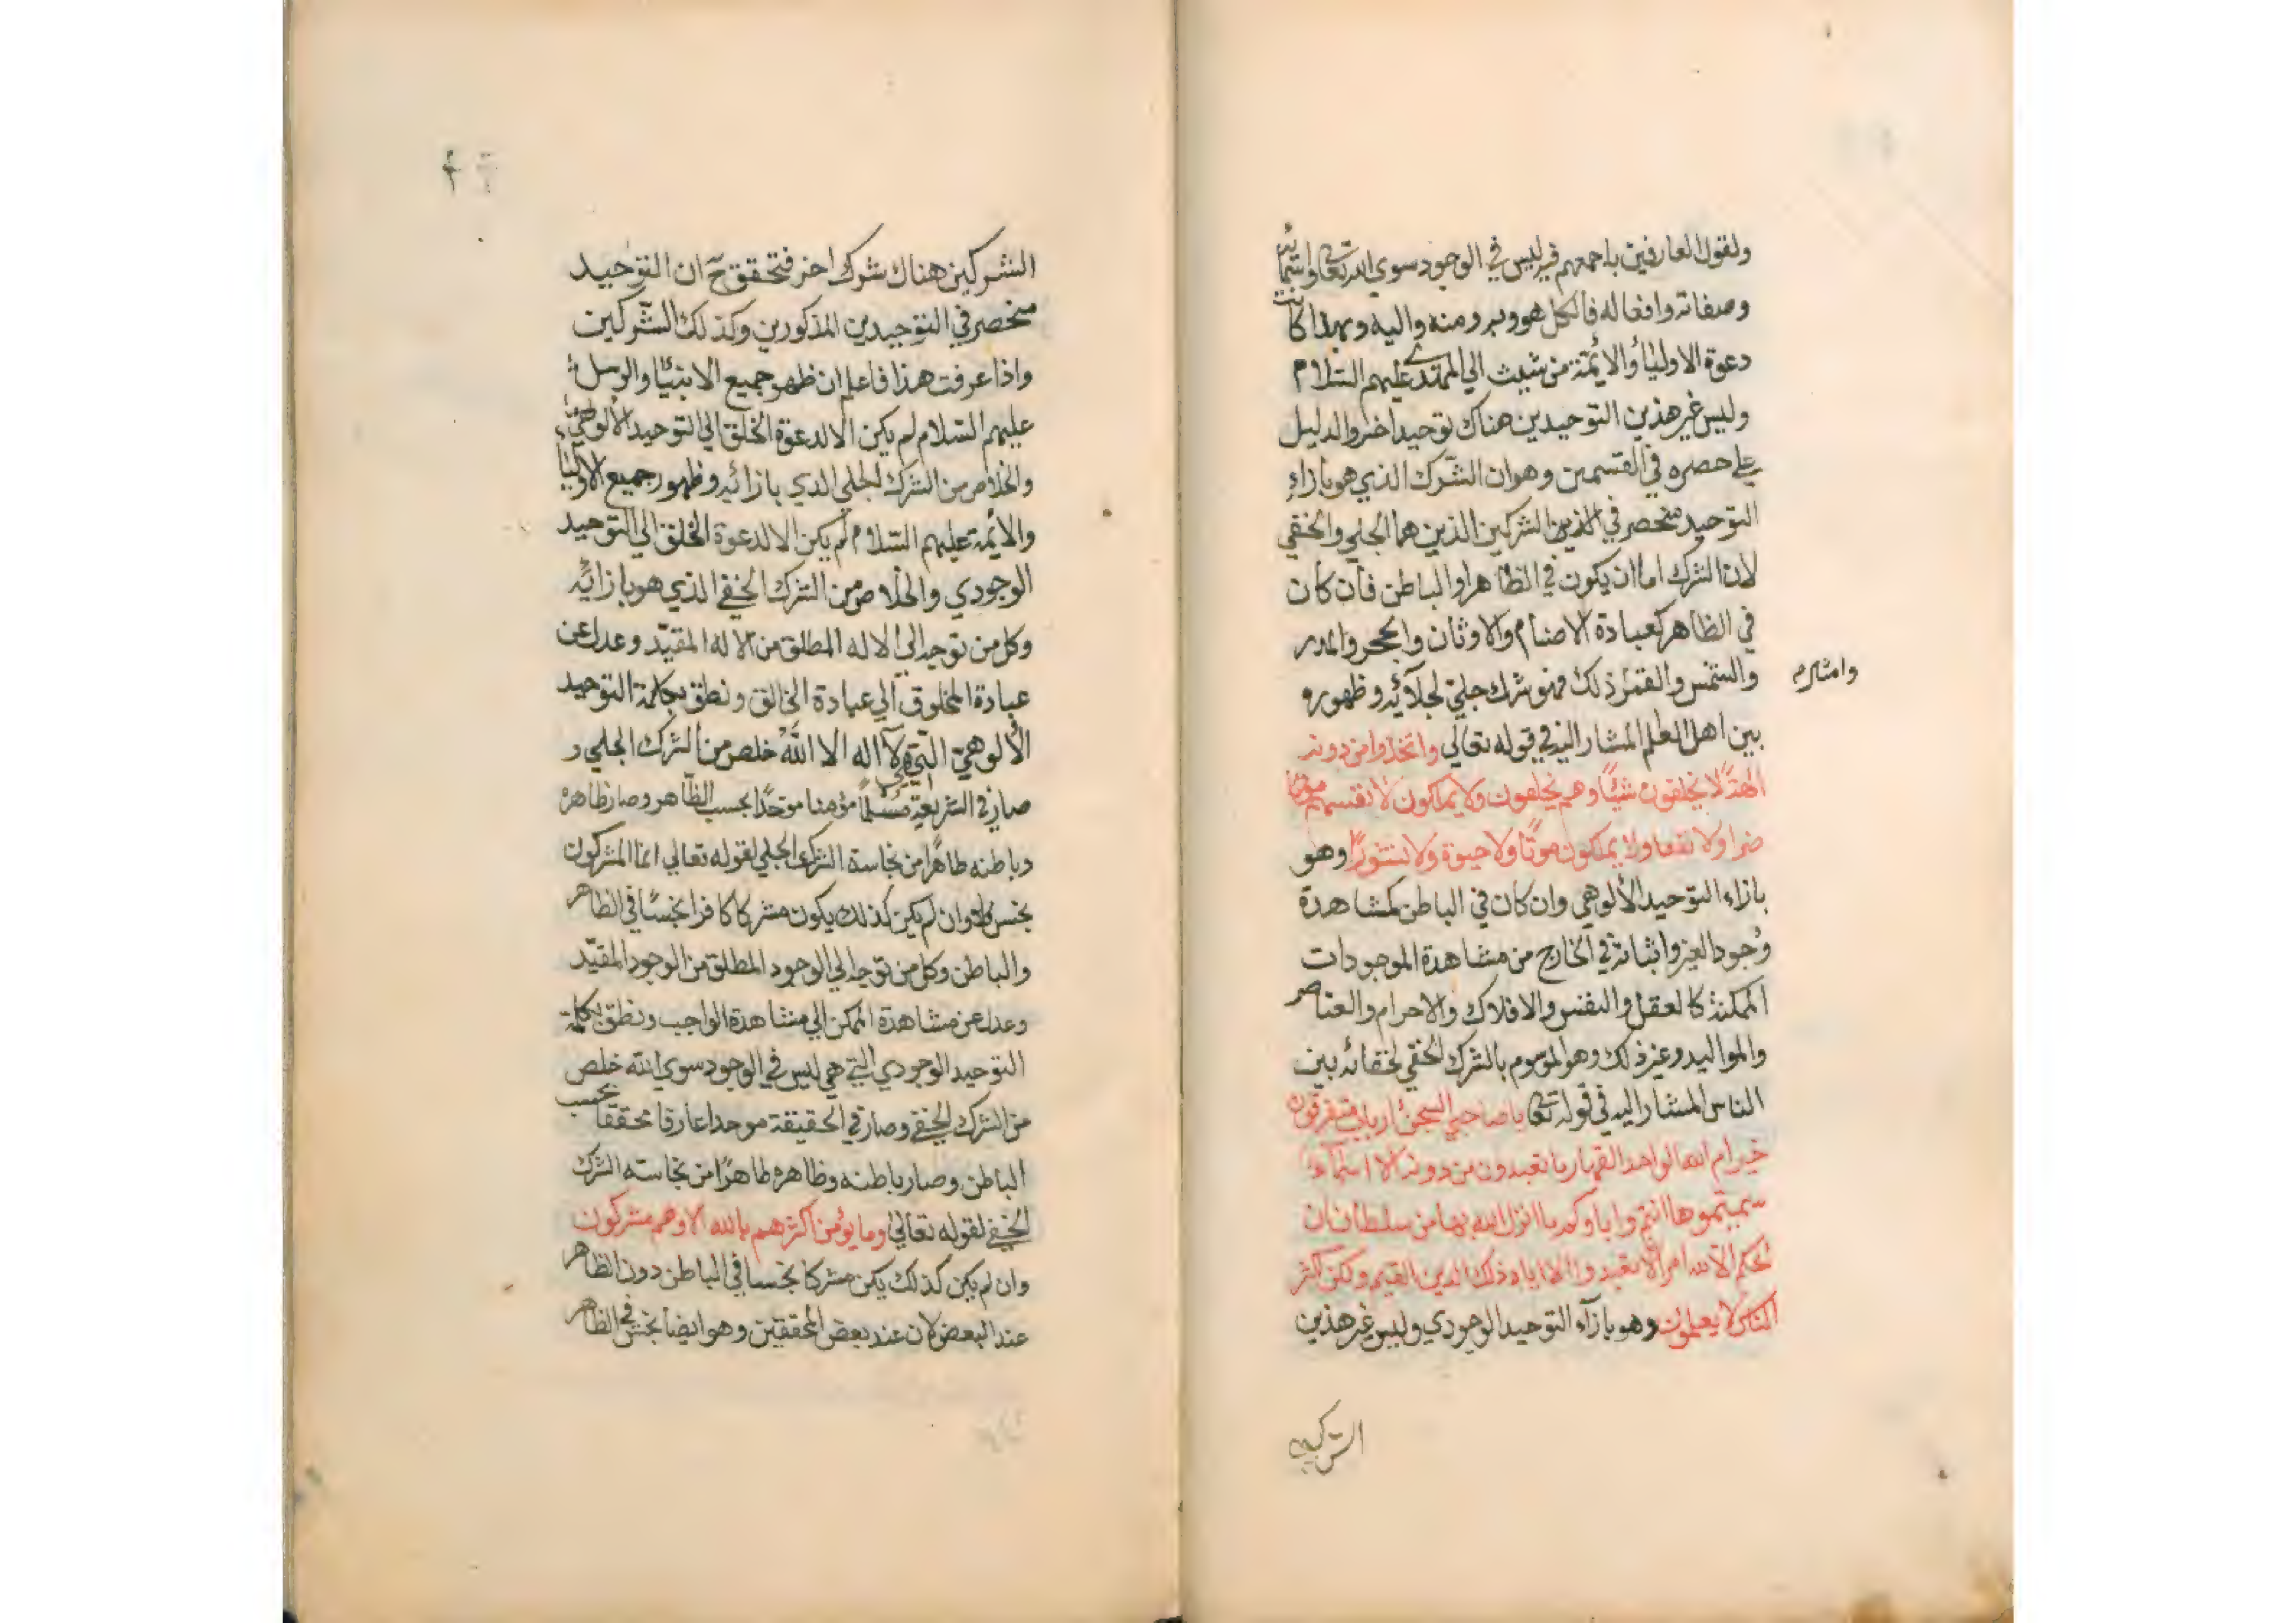 ولقول العارفين باجمعهم فيه ليس في الوجود سوي الله تعالى واسمائه
وصفاته وافعاله فالكل هو وبه ومنه واليه وبهذا كانت
دعوة الاوليأ والأئمة من شيث الي المهدي عليهم السلام
وليس غير هذين التوحيدين هناك توحيد اخر والدليل
علي حصره في القسمين وهو ان الشرك الذي هو بازاء
التوحيد منحصر في الشركين الذين هما الجلي والخفي
لان الشرك اما ان يكون في الظاهر او الباطن فأن كان
في الظاهر كعبادة الاصنام والاوثان والحجر والمدر
والشمس والقمر وامثالهم ذلك فهو شرك جلي لجلآئه وظهوره
بين اهل العلم المشار اليه في قوله تعالي واتخذوا من دونه
الهةً لا يخلقون شيئًا وهم يخلقون ولا يملكون لانفسهم
ضرا ولا نفعا ولا يملكون موتًا ولا حيوة ولا نشورًا وهو
بازاء التوحيد الألوهي وان كان في الباطن كمشاهدة
وجود الغير واثباته في الخارج من مشاهدة الموجودات
الممكنة كالعقل والنفس والافلاك والاجرام والعناصر
والمواليد وغير ذلك وهو الموسوم بالشرك الخفي لخفائه بين
الناس المشار اليه في قوله تعالى ياصاحبي السجن ارباب متفرقون
خير ام الله الواحد القهار ما تعبدون من دونه الا اسمآء
سميتموها انتم واباوكم ما انزل الله بها من سلطان ان
الحكم الا لله امر الا تعبدوا الا اياه ذلك الدين القيم ولكن اكثر
الناس لا يعلمون وهو بازآء التوحيد الوجودي وليس غير هذين
الشركين
الشركين هناك شرك اخر فتحقق ح ان التوحيد
منحصر في التوحيدين المذكورين وكذلك الشركين
واذا عرفت هذا فاعلم ان ظهور جميع الانبئا والرسل
عليهم السلام لم يكن الا لدعوة الخلق الي التوحيد الألوهي
والخلاص من الشرك الجلي الذي بازائه وظهور جميع الاوليأ
والأئمة عليهم السلام لم يكن الا لدعوة الخلق الي التوحيد
الوجودي والخلاص من الشرك الخفي الذي هو بازائه
وكل من توجه الي الاله المطلق من الاله المقيّد وعدل عن
عبادة المخلوق الي عبادة الخالق ونطق بكلمة التوحيد
الألوهي التي هي لآ اله الا اللّه خلص من الشرك الجلي و
صار في الشريعة مسلمًا مؤمنا موحّدًا بحسب الظاهر وصار ظاهره
وباطنه طاهرًا من نجاسة الشرك الجلي لقوله تعالي انما المشركون
نجس وان لم يكن كذلك يكون مشركا كافرا نجسًا في الظاهر
والباطن وكل من توجه الي الوجود المطلق من الوجود المقيّد
وعدل عن مشاهدة الممكن الي مشاهدة الواجب ونطق بكلمة
التوحيد الوجودي التي هي ليس في الوجود سوي الله خلص
من الشرك الخفي وصار في الحقيقة موحدا عارفا محققا بحسب
الباطن وصار باطنه وظاهره طاهرًا من نجاسته الشرك
الخفي لقوله تعالي وما يؤمن اكثرهم بالله الا وهم مشركون
وان لم يكن كذلك يكن مشركا نجسا في الباطن دون الظاهر
عند البعض لان عند بعض المحققين وهو ايضا نجس في الظاهر